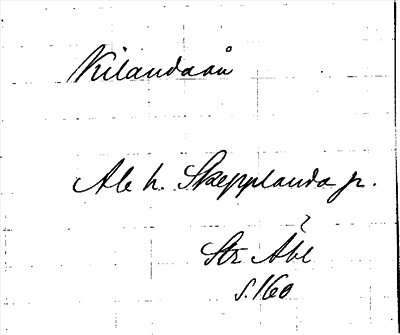 Kilandaån
Ale h. Skepplanda sn.
?
Str Åbl
s. 160